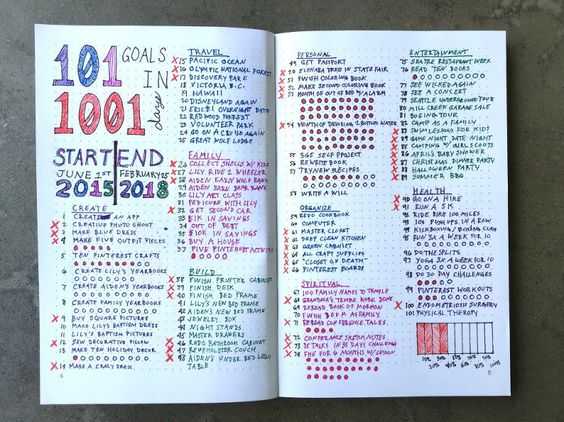 101 GOALS
IN
1001 days
START END
JUNE 1ST FEBRUARY 25
2015 2018
CREATE
1 CREATE AN APP
2 CREATIVE PHOTO SHOOT
3 MAKE BLUE DRESS
4 MAKE FIVE OUTFIT PIECES
5 TEN PINTEREST CRAFTS
6 CREATE LILY'S YEARBOOKS
7 CREATE AIDEN'S YEARBOOKS
8 CREATE FAMILY YEARBOOKS
9 BUY SQUARE PICTURES
10 MAKE LILY'S BAPTISM DRESS
11 LILY'S BAPTISM PICTURES
12 SEW DECORATIVE PILLOW
13 MAKE TEN HOLIDAY DECOR
14 MAKE A CRAZY DRESS
TRAVEL
15 PACIFIC OCEAN
16 OLYMPIC NATIONAL FOREST
17 DISCOVERY PARK
18 VICTORIA B.C.
19 HAWAII
20 DISNEYLAND AGAIN
21 OVERNIGHT DATE
22 REDWOOD FOREST
23 VOLUNTEER PARK
24 GO ON A CRUISE AGAIN
25 GREAT WOLF LODGE
FAMILY
26 COLLECT SHELLS W/ KIDS
27 LILY RIDE 2 WHEELER
28 AIDEN EARN WOLF BADGE
29 AIDEN EARN BEAR BADGE
30 LILY ART CLASS
31 PEDICURE WITH LILY
32 GET SECOND CAR
33 $1K IN SAVINGS
34 OUT OF DEBT
35 $10K IN SAVINGS
36 BUY A HOUSE
37 FIVE PINTEREST ACTIVITIES
BUILD
38 FINISH PRINTER CABINET
39 FINISH DESK
40 FINISH BED FRAME
41 LILY'S NEW BED FRAME
42 AIDEN'S NEW BED FRAME
43 JEWELRY BOX
44 NIGHT STANDS
45 MASTER DRAWERS
46 REDO BATHROOM CABINET
47 REUPHOLSTER COUCH
48 AIDEN'S UNDER BED LEGO
TABLE
PERSONAL
49 GET PASSPORT
50 ZLEMMA DRESS IN STATE FAIR
51 FINISH COLORING BOOK
52 MAKE SECOND COLORING BOOK
53 MONTH OF OUT OF BED W/ALARM
54 MONTH OF DRINKING 2 BOTTLES WATER
55 SELF PROJECT
56 REWRITE BOOK
57 TRY NEW RECIPES
58 WRITE A WILL
ORGANIZE
59 REDO COOKBOOK
60 COMPUTER
61 MASTER CLOSET
62 DEEP CLEAN KITCHEN
63 GERMAN CABINET
64 ALL CRAFT SUPPLIES
65 "CLOSET OF DEATH"
66 PINTEREST BOARDS
SPIRITUAL
67 100 FAMILY NAMES TO TEMPLE
68 GRANDMA'S TEMPLE WORK DONE
69 REREAD BOOK OF MORMON
70 FAMILY
71 REREAD CONFERENCE TALKS
72 CONFERENCE SKETCH NOTES
73 35 TALKS IN 35 DAYS CHALLENGE
74 FHE FOR 6 MONTHS W/ LESSON
ENTERTAINMENT
75 SEATTLE RESTAURANT WEEK
76 READ TEN BOOKS
77 SEE WICKED AGAIN
78 SEE A CONCERT
79 SEATTLE UNDERGROUND TOUR
80 MILL CREEK GARAGE SALE
81 BOEING TOUR
82 CAMP AS A FAMILY
83 SWIM LESSONS FOR KIDS
84 GAME NIGHT DATE NIGHT
85 CAMPING W/ GIRL SCOUTS
86 APRIL'S BABY SHOWER
87 CHRISTMAS DINNER PARTY
88 HALLOWEEN PARTY
89 SUMMER BBQ
HEALTH
90 GO ON A HIKE
91 RUN A 5K
92 RIDE BIKE 100 MILES
93 100 PUSHUPS IN A ROW
94 KICKBOXING/ CLASS
95 RUN 3X A WEEK FOR 10
96 DO THE SPLITS
97 YOGA 3X A WEEK FOR 10
98 30 DAY CHALLENGES
99 PINTEREST WORKOUTS
100 ENDOMETRIOSIS SURGERY
101 PHYSICAL THERAPY